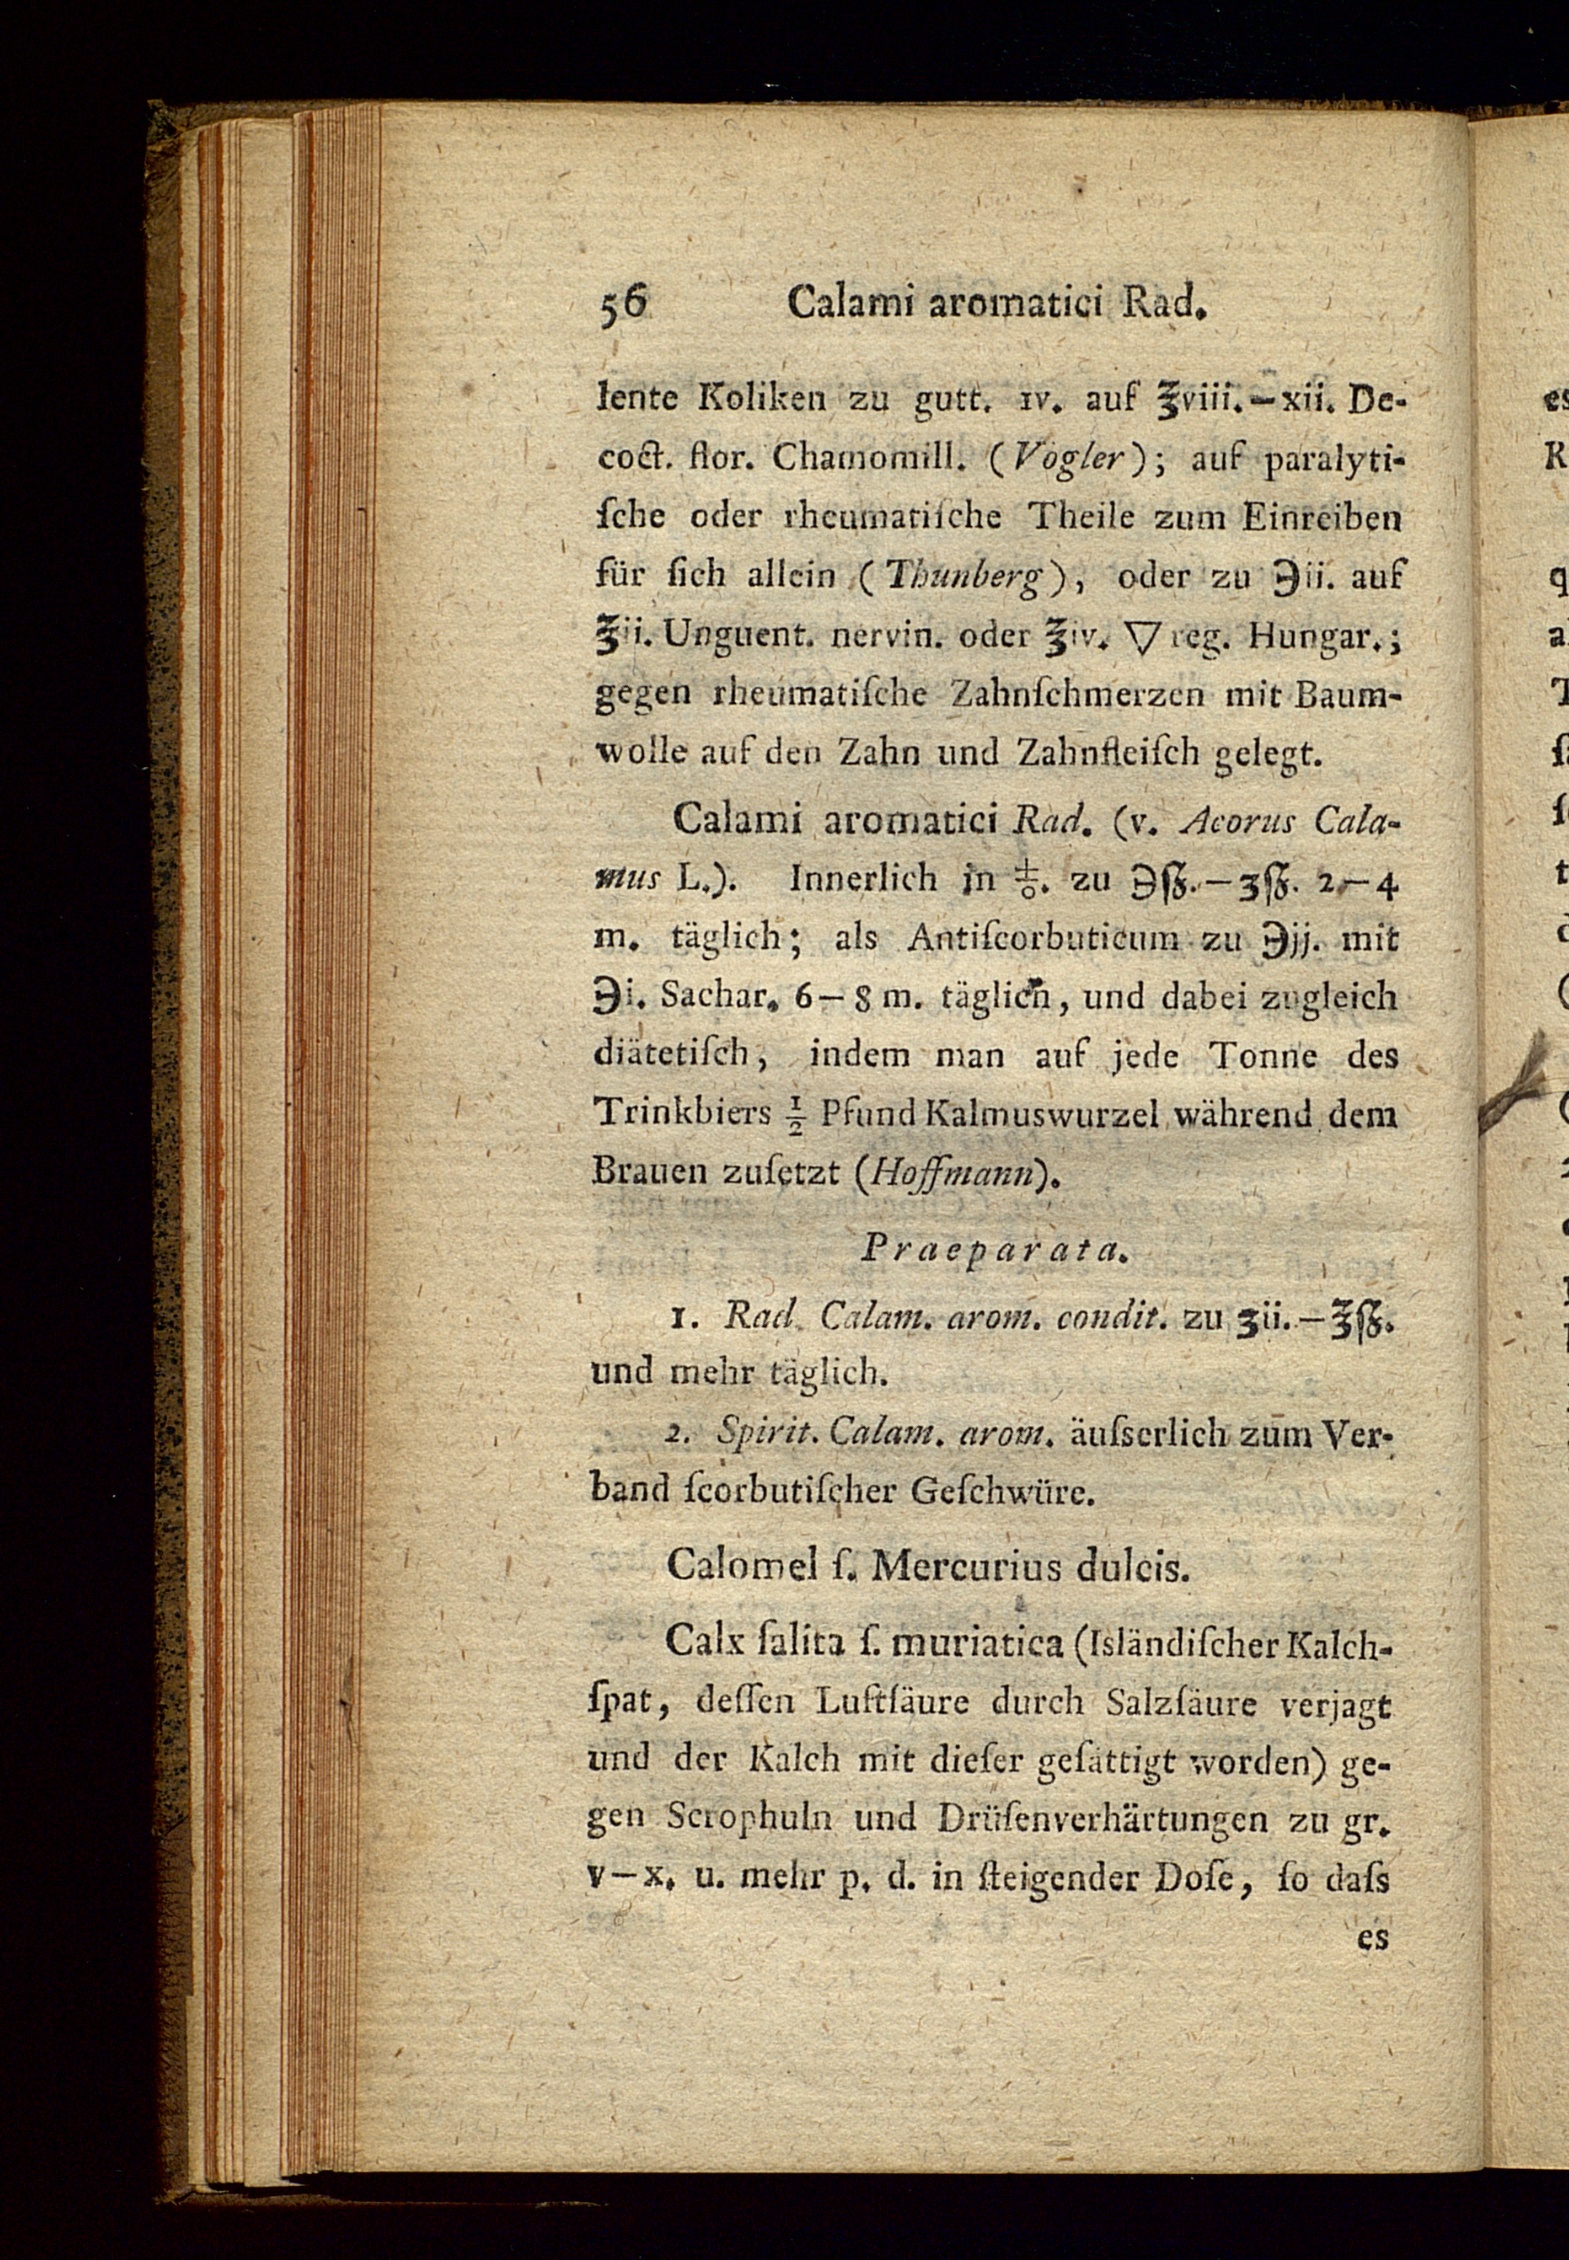 56 Calami aromatici Rad.
lente Koliken zu gutt. IV. auf ℥viii.—xii. De-
coct. flor. Chamomill. (Vogler); auf paralyti-
ſche oder rheumatiſche Theile zum Einreiben
für ſich allein (Thunberg), oder zu ℈ii. auf
℥ii. Unguent. nervin. oder ℥iv. ▽ reg. Hungar.;
gegen rheumatiſche Zahnſchmerzen mit Baum-
wolle auf den Zahn und Zahnfleiſch gelegt.
Calami aromatici Rad. (v. Acorus Cala-
mus L.). Innerlich in ♁. zu ℈ſʒ.—ʒſʒ. 2—4
m. täglich; als Antiſcorbuticum zu ℈jj. mit
℈i. Sachar. 6—8 m. täglich, und dabei zugleich
diätetiſch, indem man auf jede Tonne des
Trinkbiers ½ Pfund Kalmuswurzel während dem
Brauen zuſetzt (Hoffmann).
Praeparata.
1. Rad. Calam. arom. condit. zu ʒii.—℥ſʒ.
und mehr täglich.
2. Spirit. Calam. arom. äuſserlich zum Ver-
band ſcorbutiſcher Geſchwüre.
Calomel ſ. Mercurius dulcis.
Calx ſalita ſ. muriatica (Isländiſcher Kalch-
ſpat, deſſen Luftſäure durch Salzſäure verjagt
und der Kalch mit dieſer geſättigt worden) ge-
gen Scrophuln und Drüſenverhärtungen zu gr.
v—x. u. mehr p. d. in ſteigender Doſe, ſo daſs
es